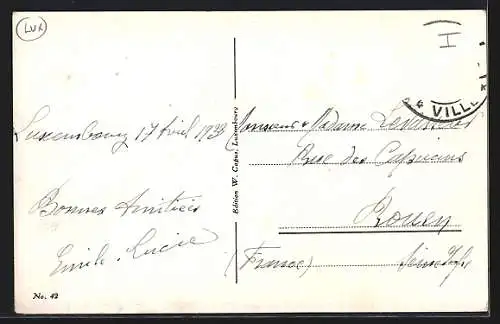 LUX
I
* VILLE
Luxembourg 17 Avril 1939
Bonnes Amitiés
Emile Lucie
Edition W. Capus, Luxembourg
Monsieur & Madame
Rue des Capucins
Rouen
(France) Seine Infre
No. 42